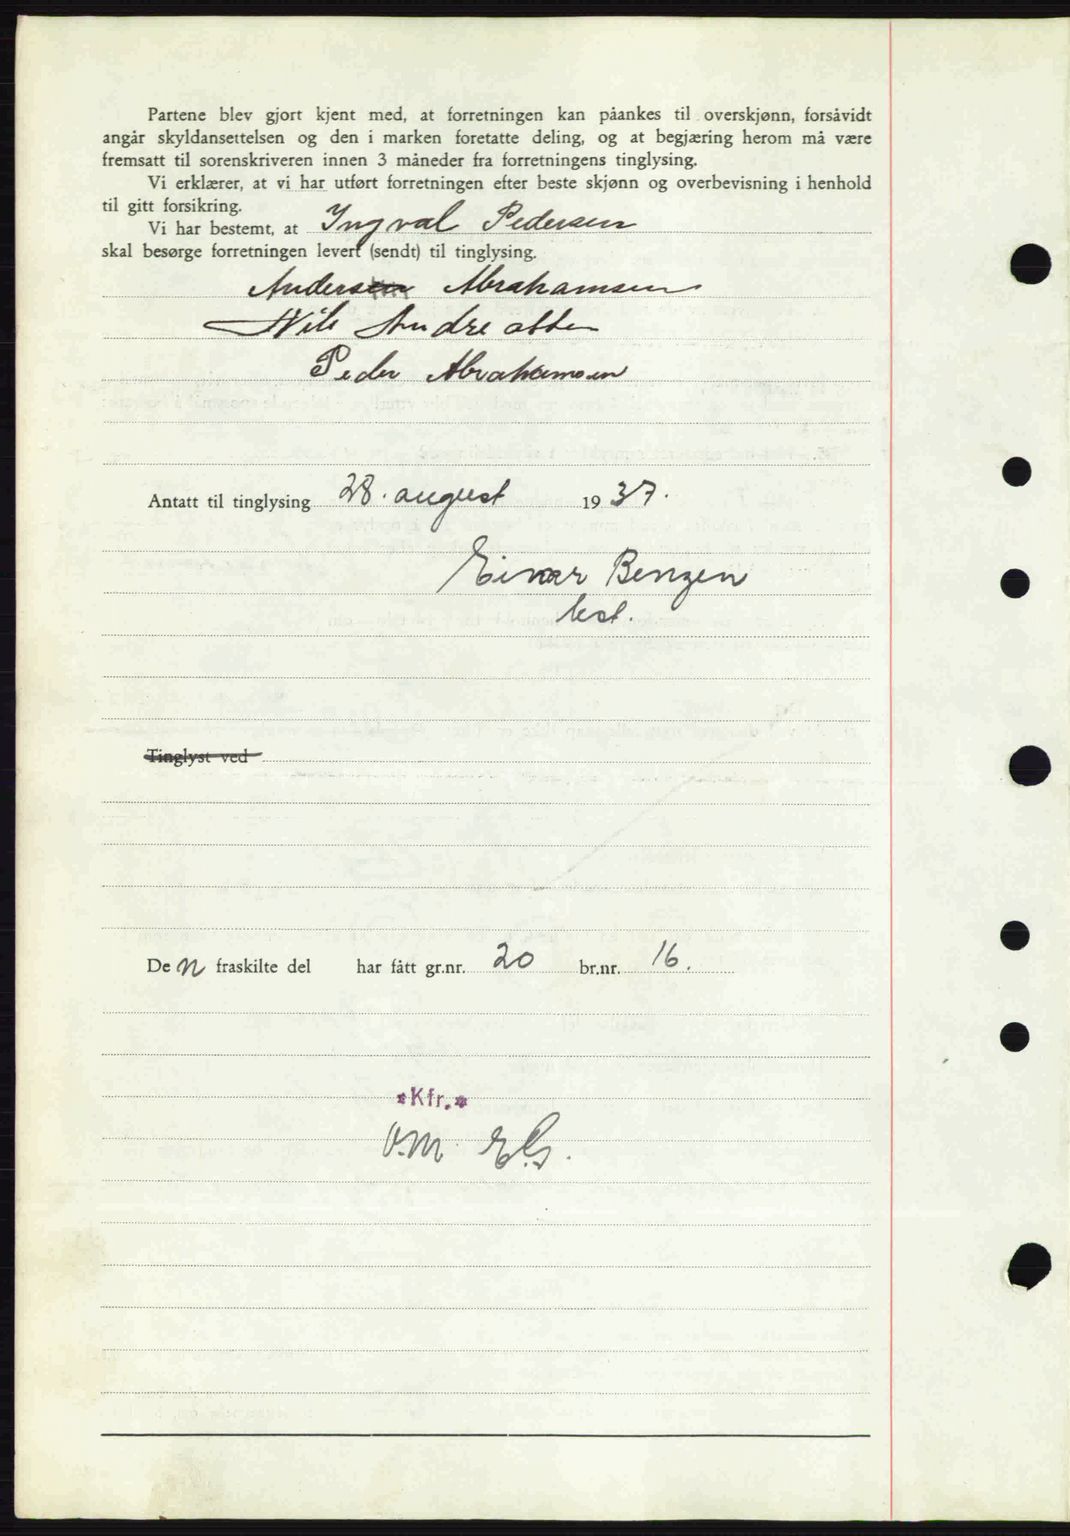 Partene blev gjort kjent med, at forretningen kan påankes til overskjønn, forsåvidt
angår skyldansettelsen og den i marken foretatte deling, og at begjæring herom må være
fremsatt til sorenskriveren innen 3 måneder fra forretningens tinglysing.
Vi erklærer, at vi har utført forretningen efter beste skjønn og overbevisning i henhold
til gitt forsikring.
Vi har bestemt, at Ingval Pedersen
skal besørge forretningen levert (sendt) til tinglysing.
Anders Abrahamsen
Nils Andreassen
Peder Abrahamsen
Antatt til tinglysing 28. august 1937.
Einar Benzen
best.
Tinglyst ved
Den fraskilte del har fått gr.nr. 20 br.nr. 16.
*Kfr.*
O.M. E.G.